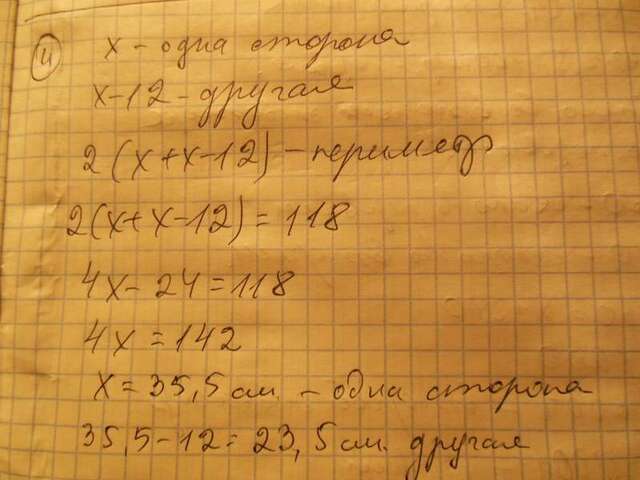 4 х - одна сторона
х-12 - другая
2(х+х-12) - периметр
2(х+х-12) = 118
4х - 24 = 118
4х = 142
х = 35,5 см. - одна сторона
35,5 - 12 = 23,5 см. другая